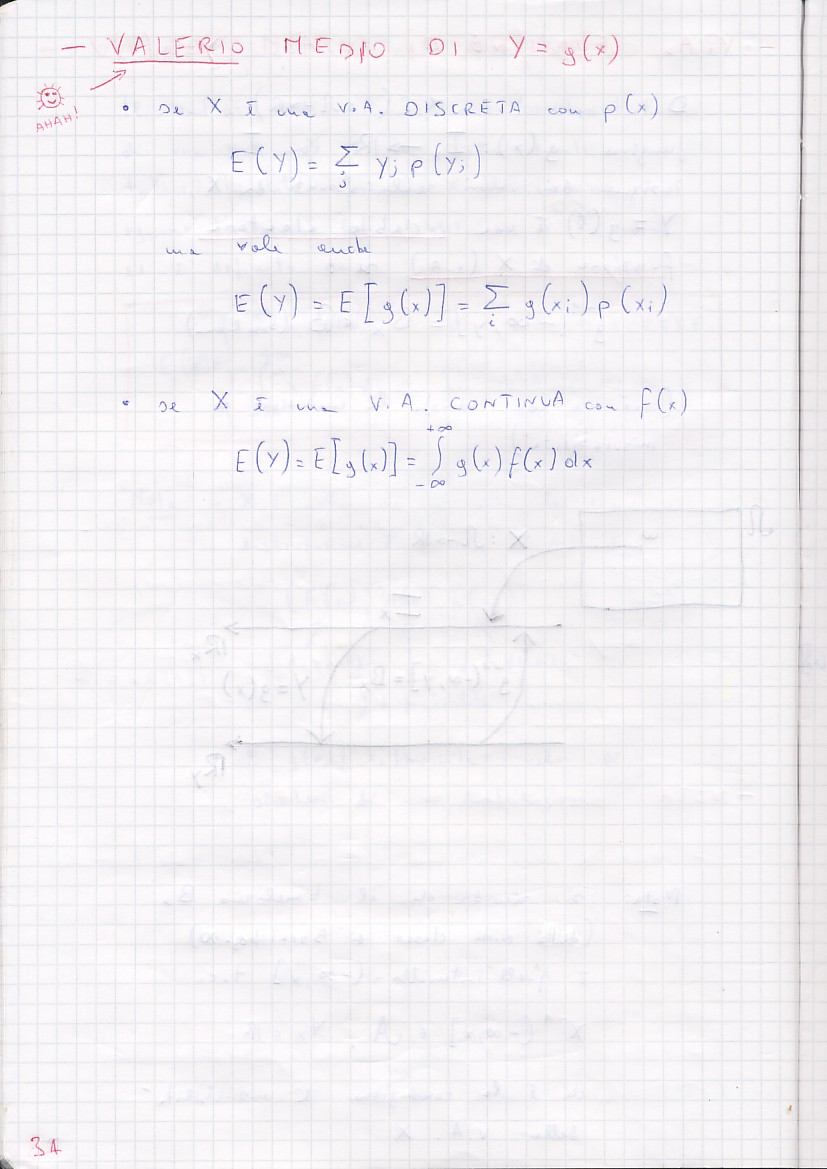 - VALERIO MEDIO DI Y = g(x)
AHAH!
• se X è una V.A. DISCRETA con p(x)
E(Y) = Σ_j y_j p(y_j)
ma vale anche
E(Y) = E[g(x)] = Σ_i g(x_i) p(x_i)
• se X è una V.A. CONTINUA con f(x)
E(Y) = E[g(x)] = ∫_{-∞}^{+∞} g(x) f(x) dx